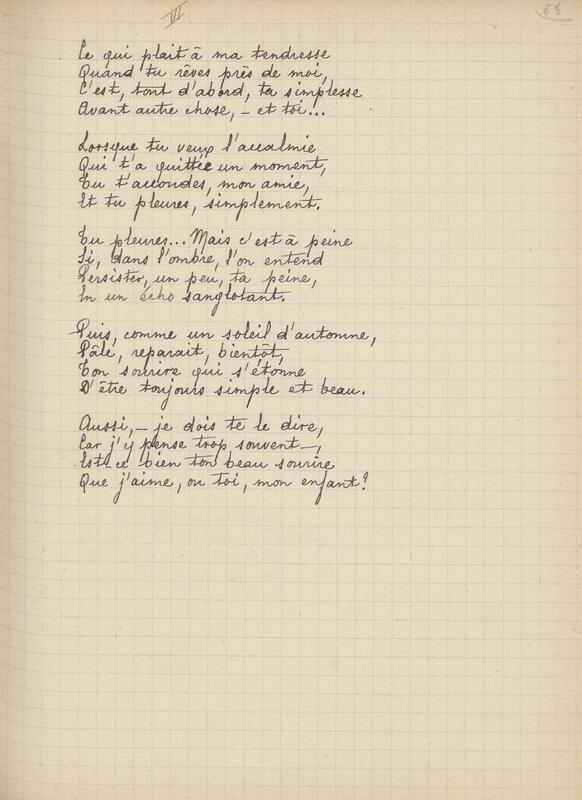 VI
68
Ce qui plait à ma tendresse
Quand tu rêves près de moi,
C'est, tout d'abord, ta simplesse
Avant autre chose, – et toi...
Lorsque tu veux l'accalmie
Qui t'a quittée un moment,
Tu t'accoudes, mon amie,
Et tu pleures, simplement.
Tu pleures... Mais c'est à peine
Si, dans l'ombre, l'on entend
Persister, un peu, ta peine,
En un écho sanglotant.
Puis, comme un soleil d'automne,
Pâle, reparait, bientôt,
Ton sourire qui s'étonne
D'être toujours simple et beau.
Aussi, – je dois te le dire,
Car j'y pense trop souvent –,
Est-ce bien ton beau sourire
Que j'aime, ou toi, mon enfant?